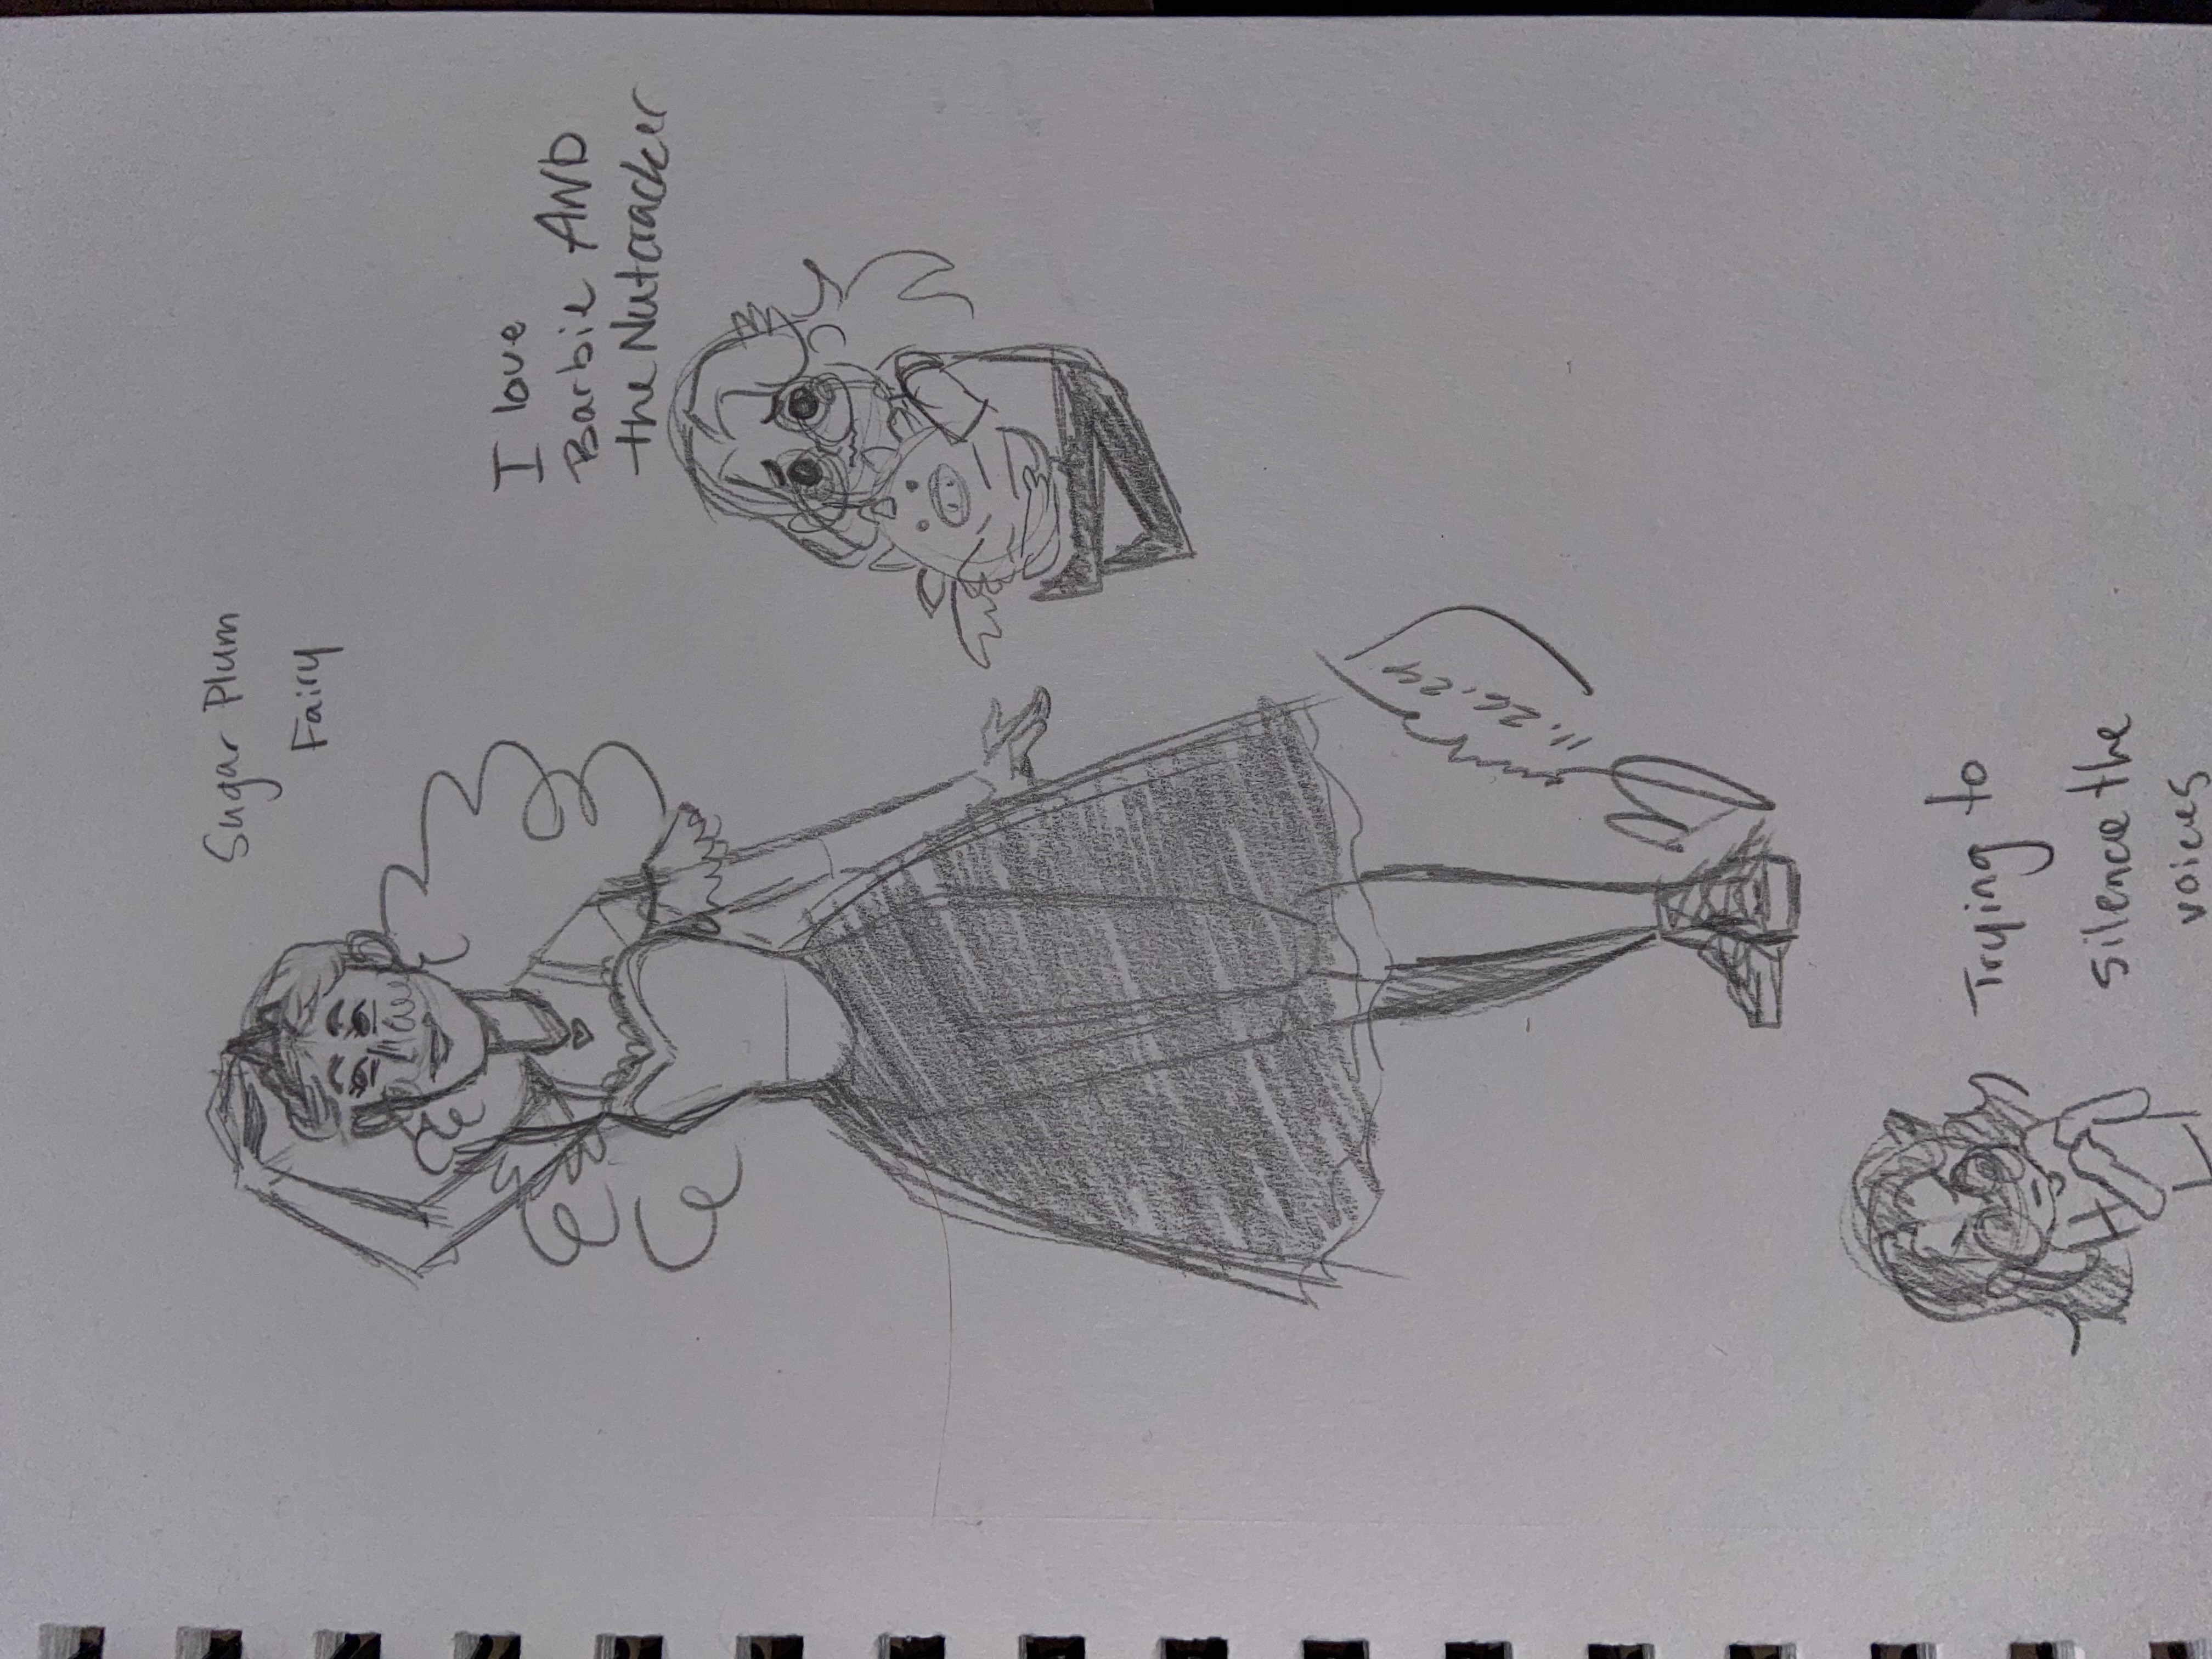 Sugar Plum
Fairy
I love
Barbie AND
the Nutcracker
11.26.24
Trying to
silence the
voices